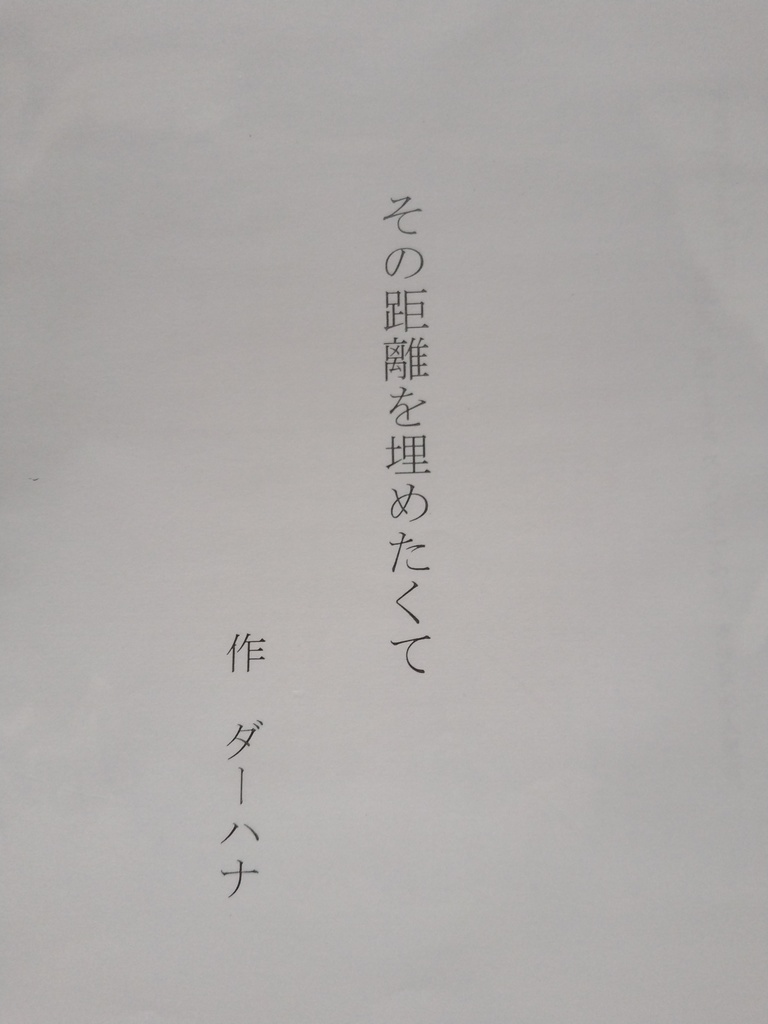 その距離を埋めたくて
作　ダーハナ